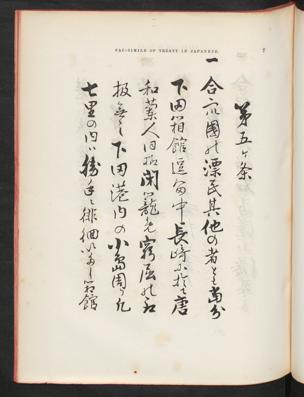 FAC-SIMILE OF TREATY IN JAPANESE. 7
第五ヶ条
一 合衆國の漂民其他の者とも當分
下田箱館逗留中長崎に於て唐
和蘭人同様閉籠免窮屈の取
扱無之下田港内の小島周り凡
七里の内ハ勝手に徘徊いたし箱館